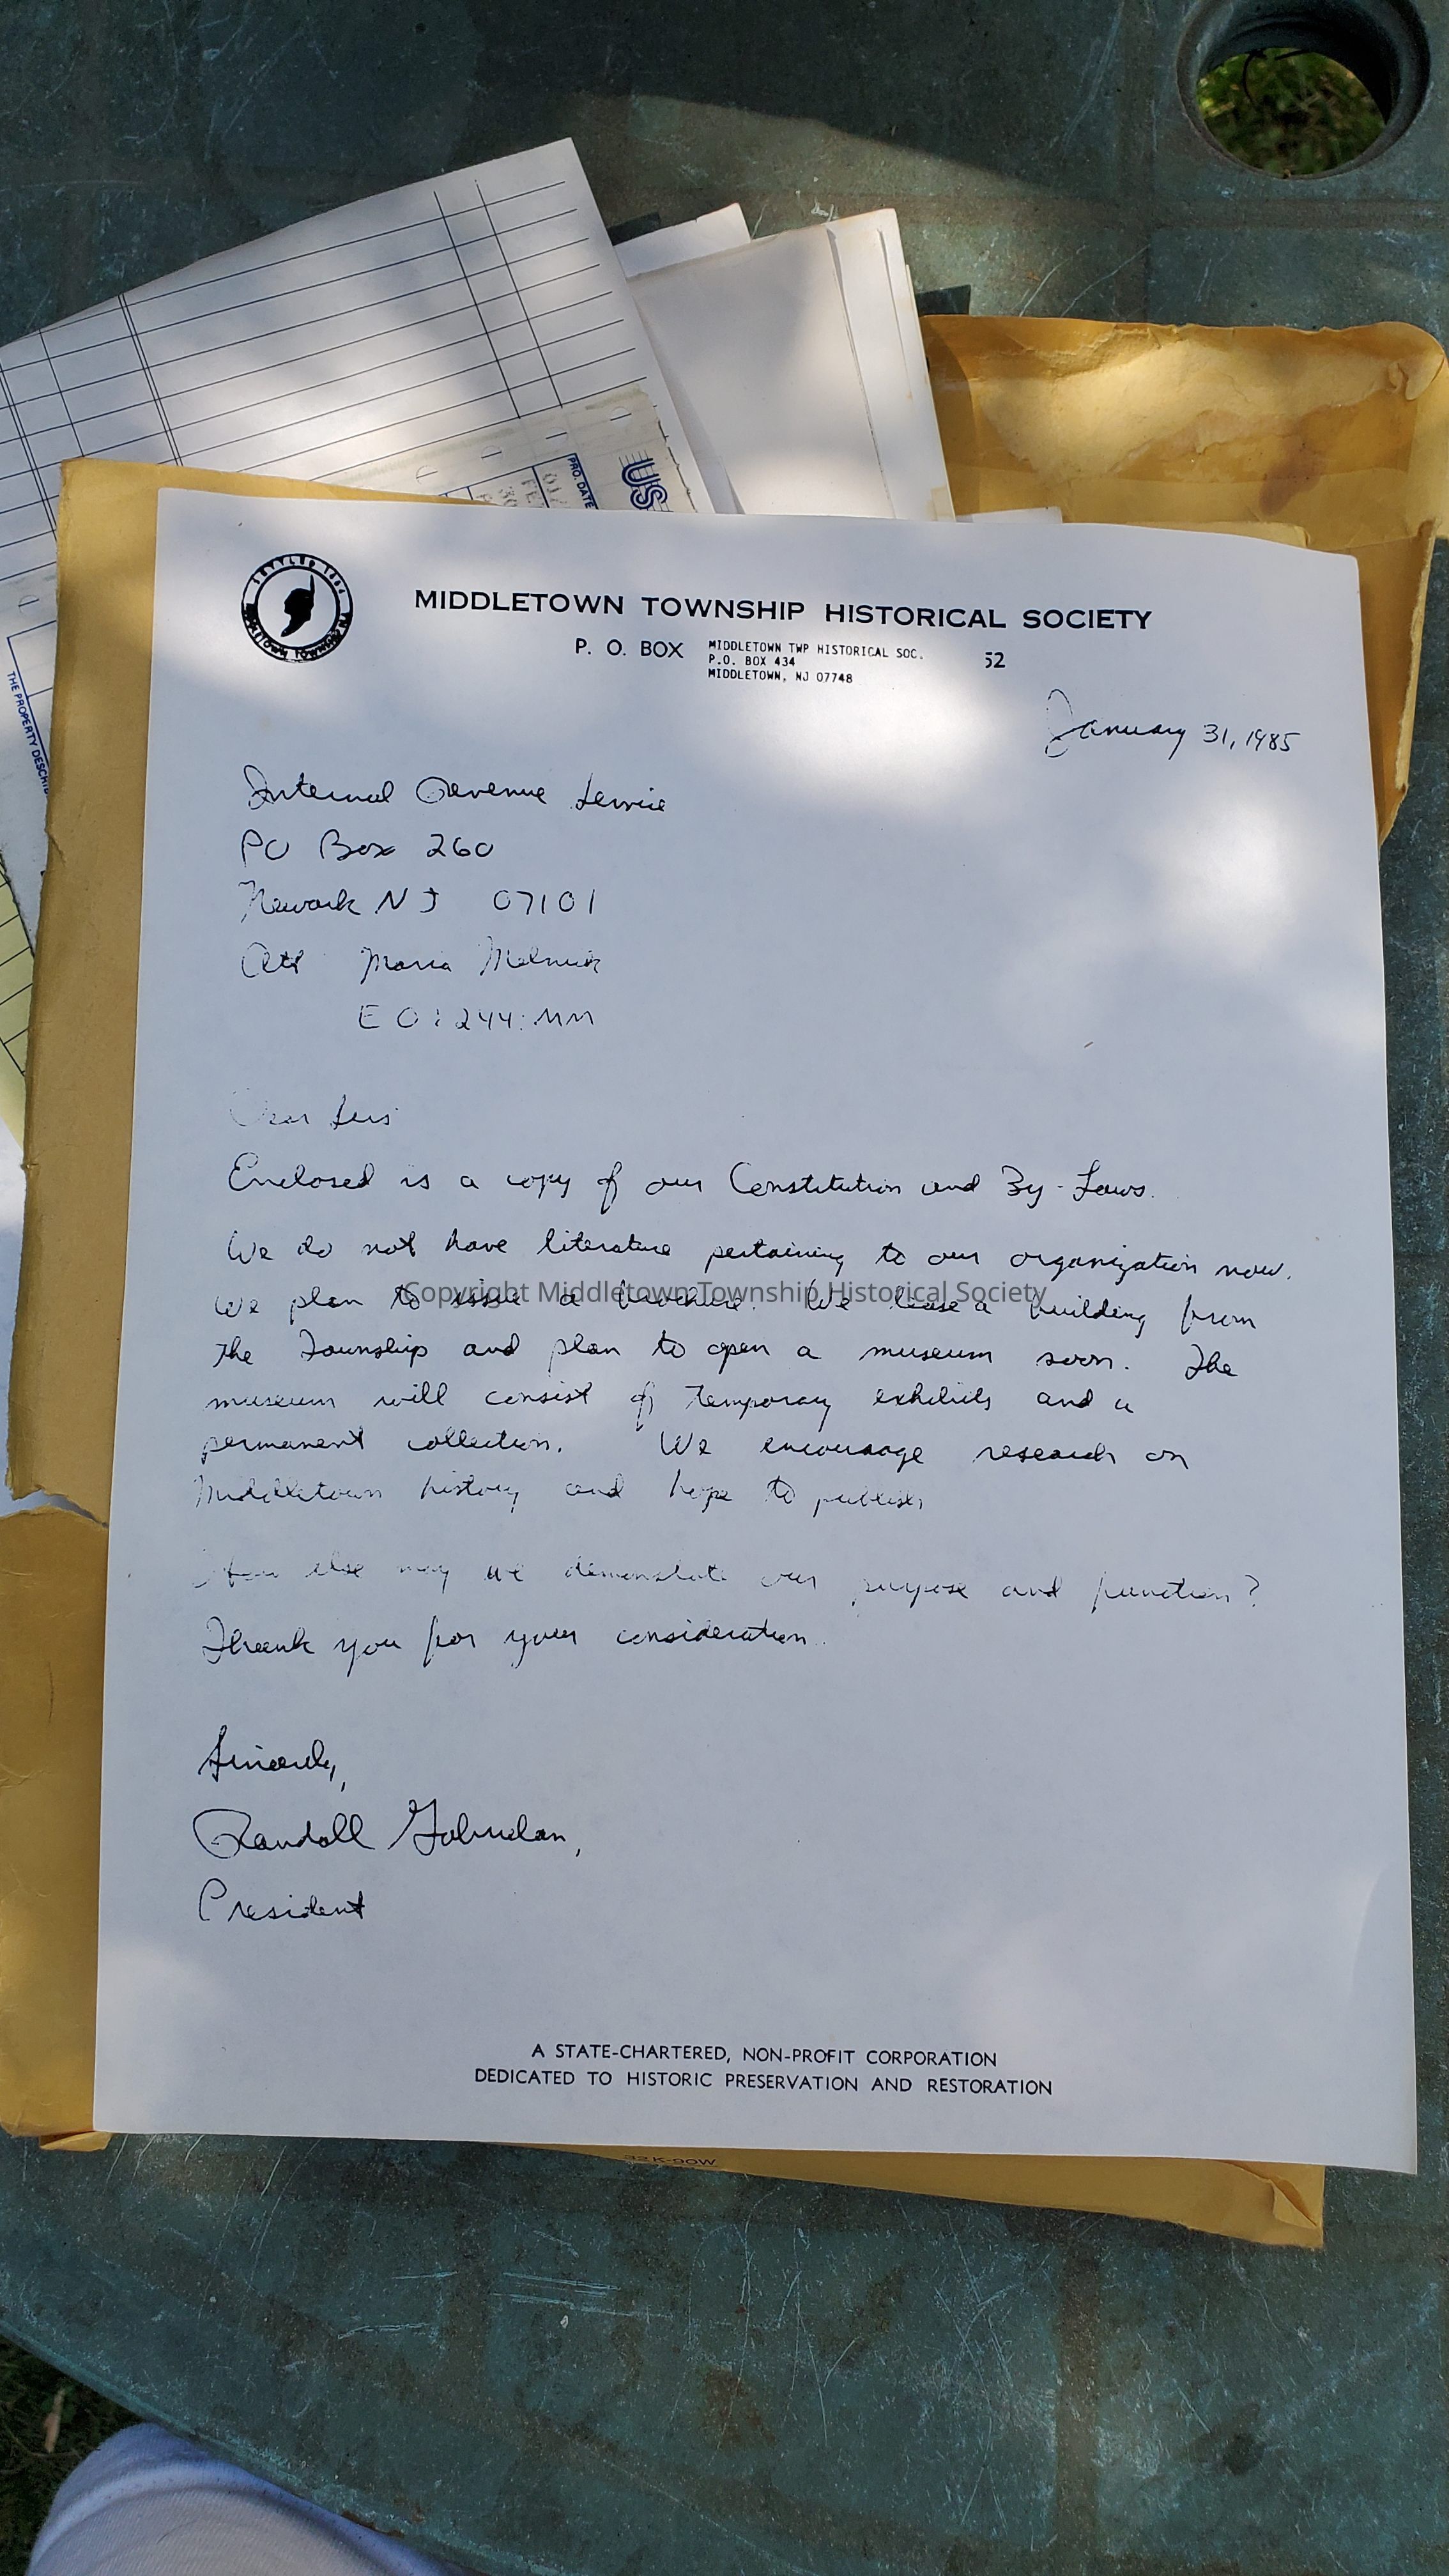 US
PRO. DATE
THE PROPERTY DESCRIB
SETTLED 1664
MIDDLETOWN TOWNSHIP
MIDDLETOWN TOWNSHIP HISTORICAL SOCIETY
P. O. BOX
MIDDLETOWN TWP HISTORICAL SOC.
P.O. BOX 434
MIDDLETOWN, NJ 07748
52
January 31, 1985
Internal Revenue Service
PO Box 260
Newark NJ 07101
Att Maria Melnick
EO:244:MM
Dear Sirs
Enclosed is a copy of our Constitution and By-Laws.
We do not have literature pertaining to our organization now.
We plan to issue a brochure. We lease a building from
Copyright Middletown Township Historical Society
the Township and plan to open a museum soon. The
museum will consist of temporary exhibits and a
permanent collection. We encourage research on
Middletown history and hope to publish
How else may we demonstate our purpose and function?
Thank you for your consideration.
Sincerely,
Randall Gabrielan,
President
A STATE-CHARTERED, NON-PROFIT CORPORATION
DEDICATED TO HISTORIC PRESERVATION AND RESTORATION
32K-90W